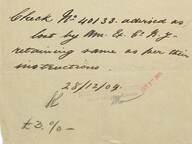 Check No 40133. advised as
lost by Mr. E. C. B. J-
retaining same as per their
instructions.
28/12/09.
£3. %-